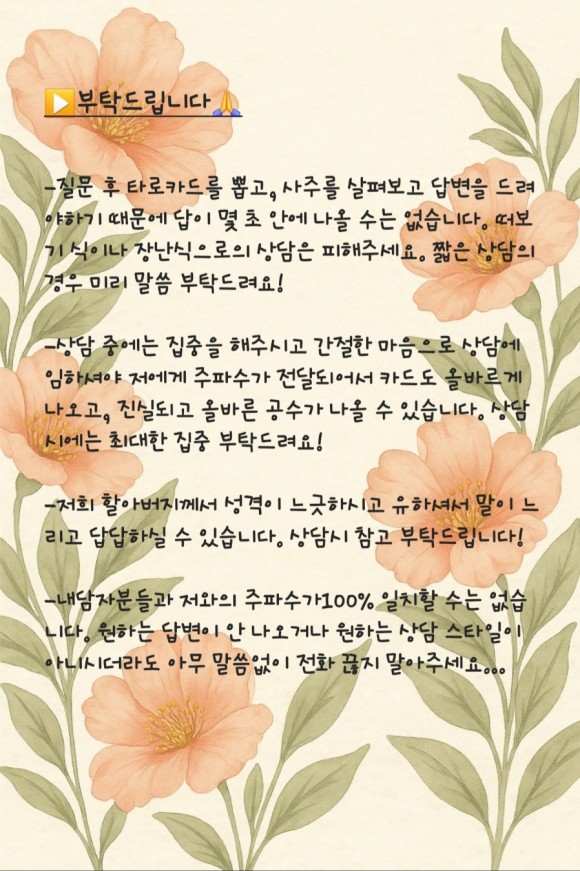 ▶️부탁드립니다🙏
-질문 후 타로카드를 뽑고, 사주를 살펴보고 답변을 드려
야하기 때문에 답이 몇 초 안에 나올 수는 없습니다. 떠보
기 식이나 장난식으로의 상담은 피해주세요. 짧은 상담의
경우 미리 말씀 부탁드려요!
-상담 중에는 집중을 해주시고 간절한 마음으로 상담에
임하셔야 저에게 주파수가 전달되어서 카드도 올바르게
나오고, 진실되고 올바른 공수가 나올 수 있습니다. 상담
시에는 최대한 집중 부탁드려요!
-저희 할아버지께서 성격이 느긋하시고 유하셔서 말이 느
리고 답답하실 수 있습니다. 상담시 참고 부탁드립니다!
-내담자분들과 저와의 주파수가100% 일치할 수는 없습
니다. 원하는 답변이 안 나오거나 원하는 상담 스타일이
아니시더라도 아무 말씀없이 전화 끊지 말아주세요...